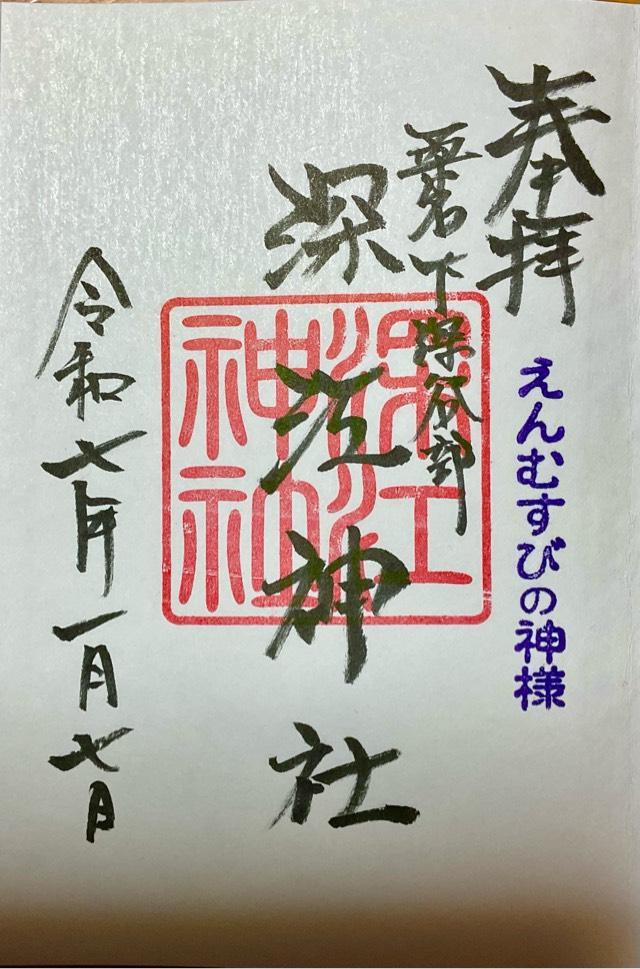 奉拝
えんむすびの神様
桑名下深谷部
深江神社
深江
神社
令和七年一月七日